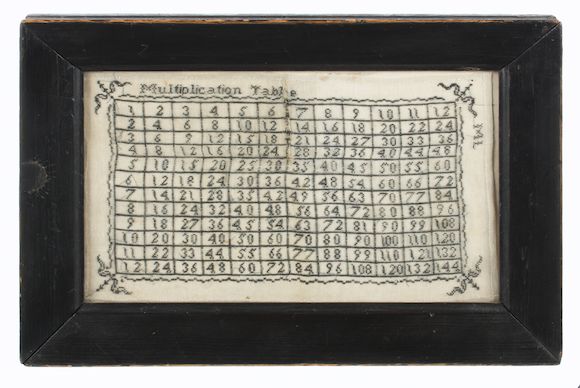 Multiplication Table
1 2 3 4 5 6 7 8 9 10 11 12
2 4 6 8 10 12 14 16 18 20 22 24
3 6 9 12 15 18 21 24 27 30 33 36
4 8 12 16 20 24 28 32 36 40 44 48
5 10 15 20 25 30 35 40 45 50 55 60
6 12 18 24 30 36 42 48 54 60 66 72
7 14 21 28 35 42 49 56 63 70 77 84
8 16 24 32 40 48 56 64 72 80 88 96
9 18 27 36 45 54 63 72 81 90 99 108
10 20 30 40 50 60 70 80 90 100 110 120
11 22 33 44 55 66 77 88 99 110 121 132
12 24 36 48 60 72 84 96 108 120 132 144